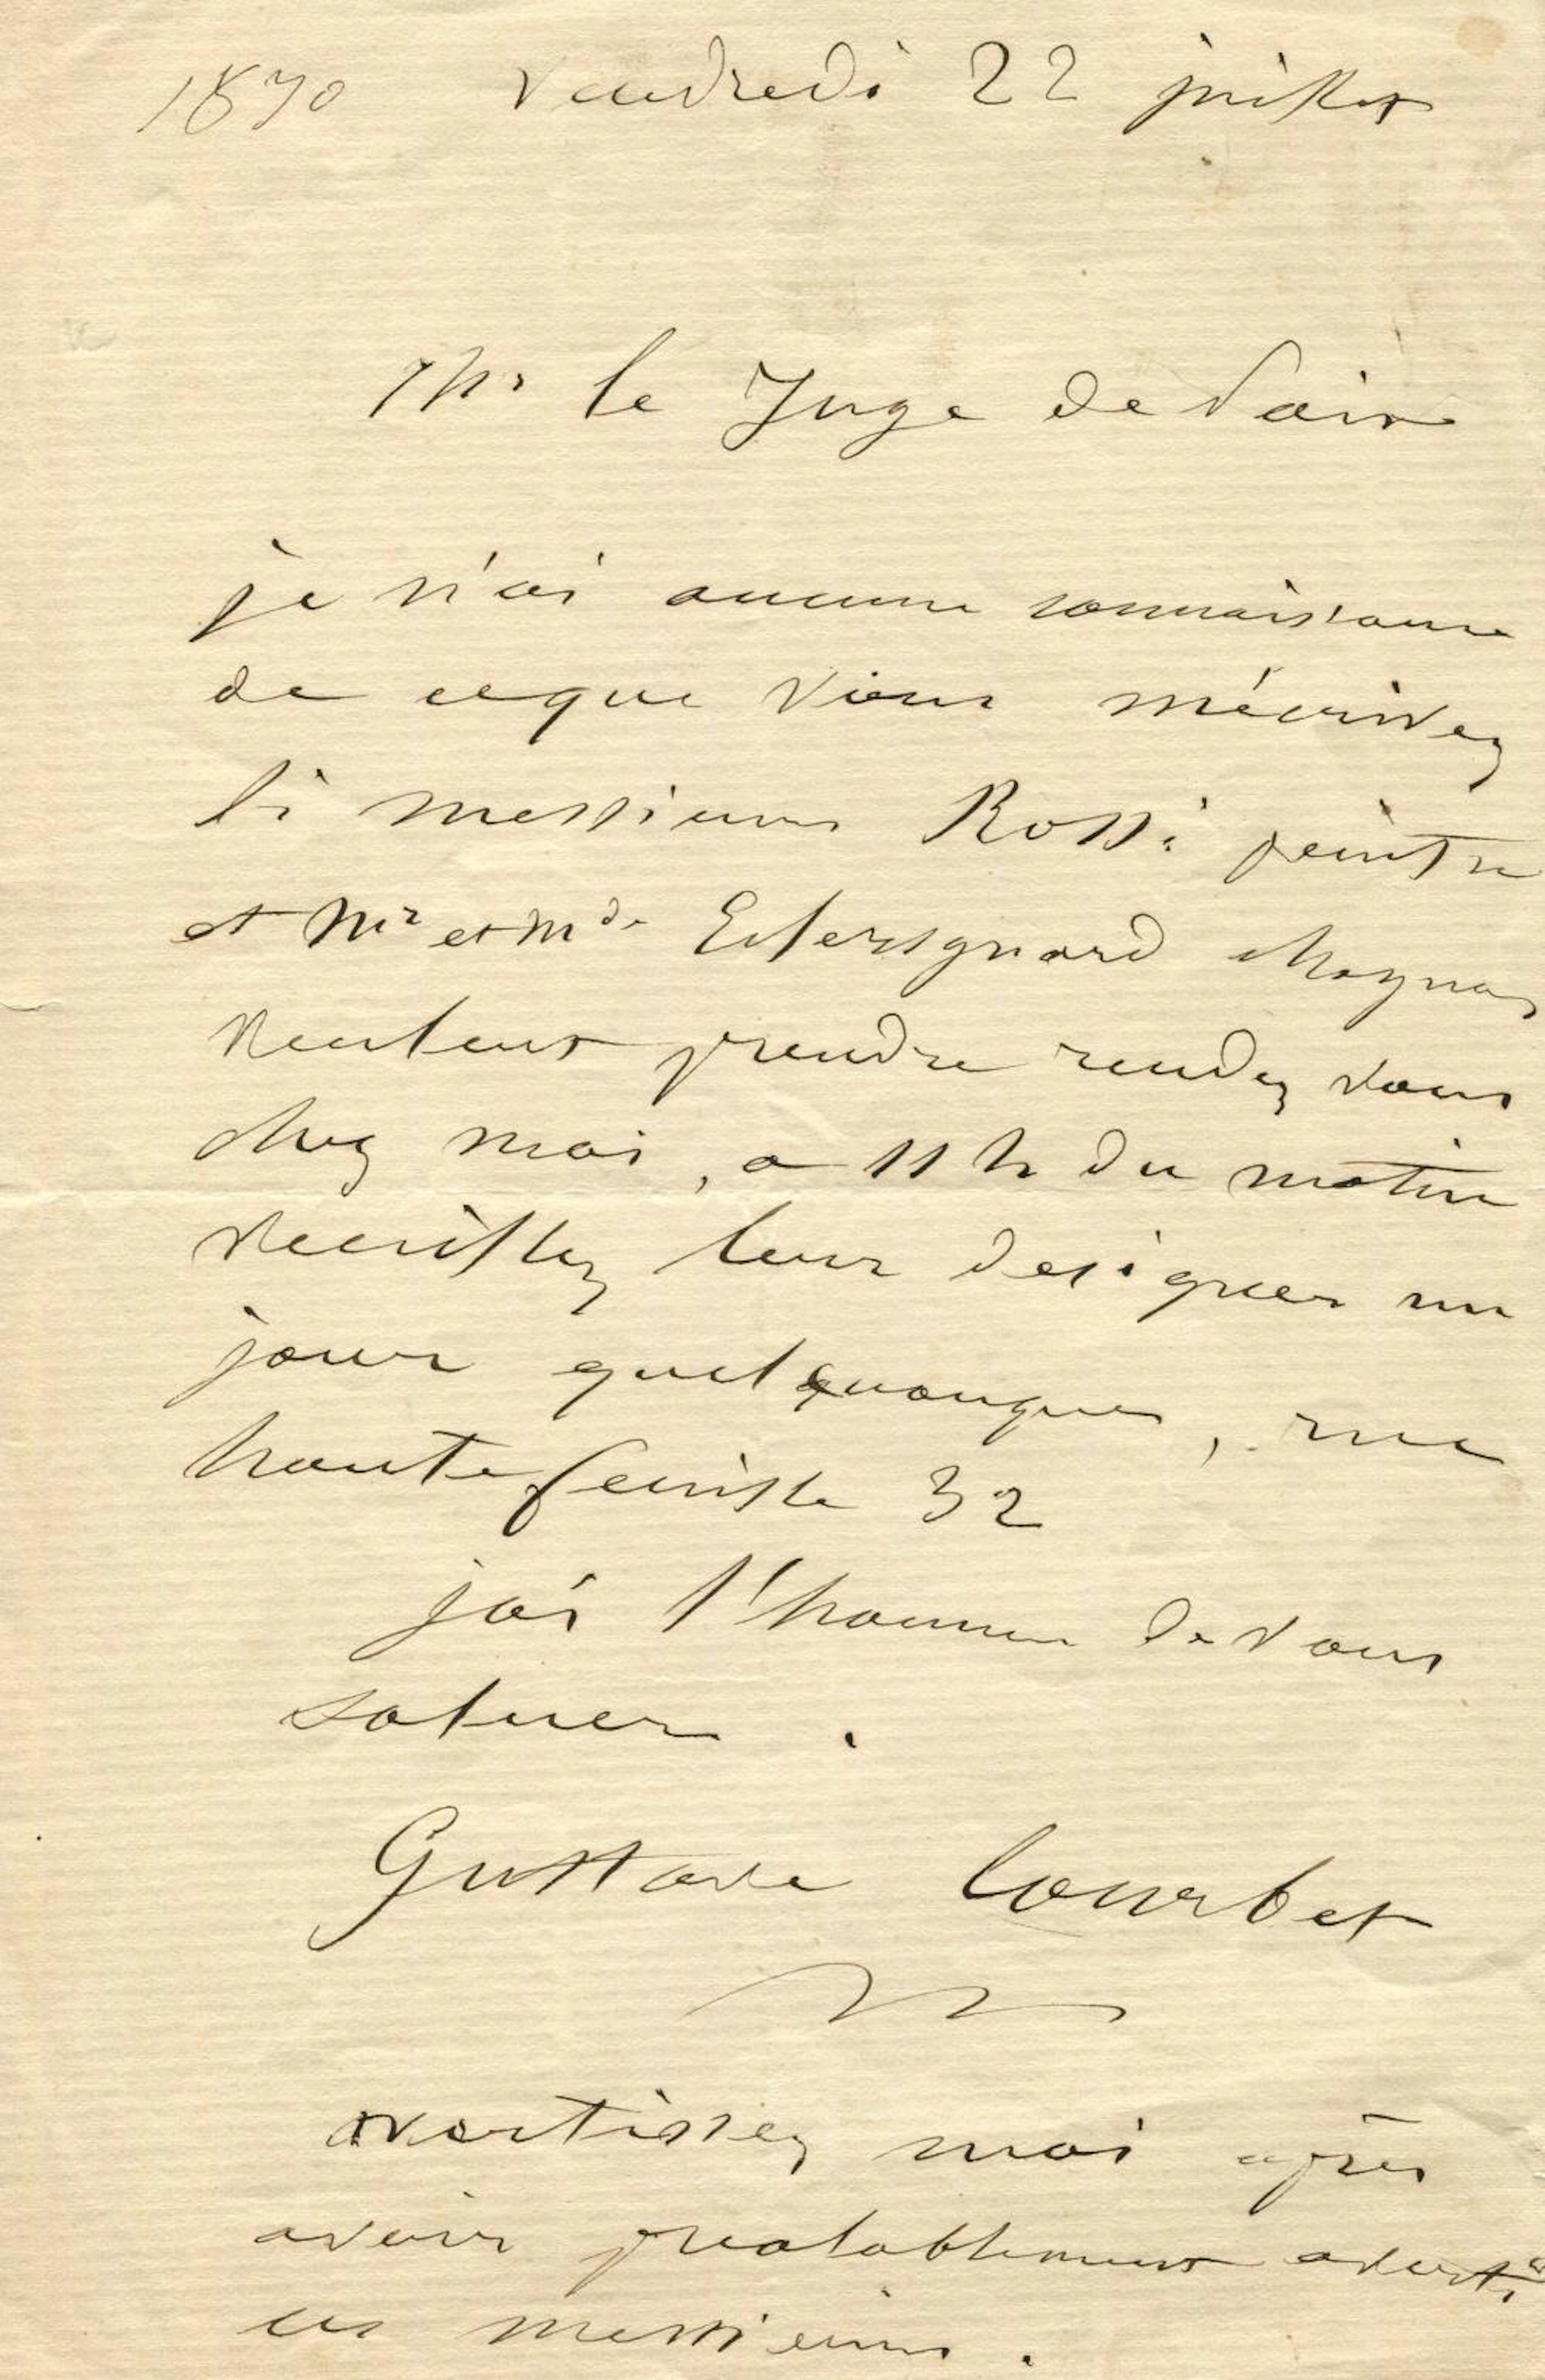 1870 Vendredi 22 juillet
Mr le Juge de Paix
je n'ai aucune connaissance
de ceque vous m'écrivez
si messieurs Rossi peintre
et Mr et Mde
veulent prendre rendez vous
chez moi, a 11 h du matin
veuillez leur designer un
jour quelquonques, rue
hautefeuille 32
j'ai l'honneur de vous
saluer.
Gustave Courbet
avertissez moi après
avoir prealablement averti
ces messieurs.